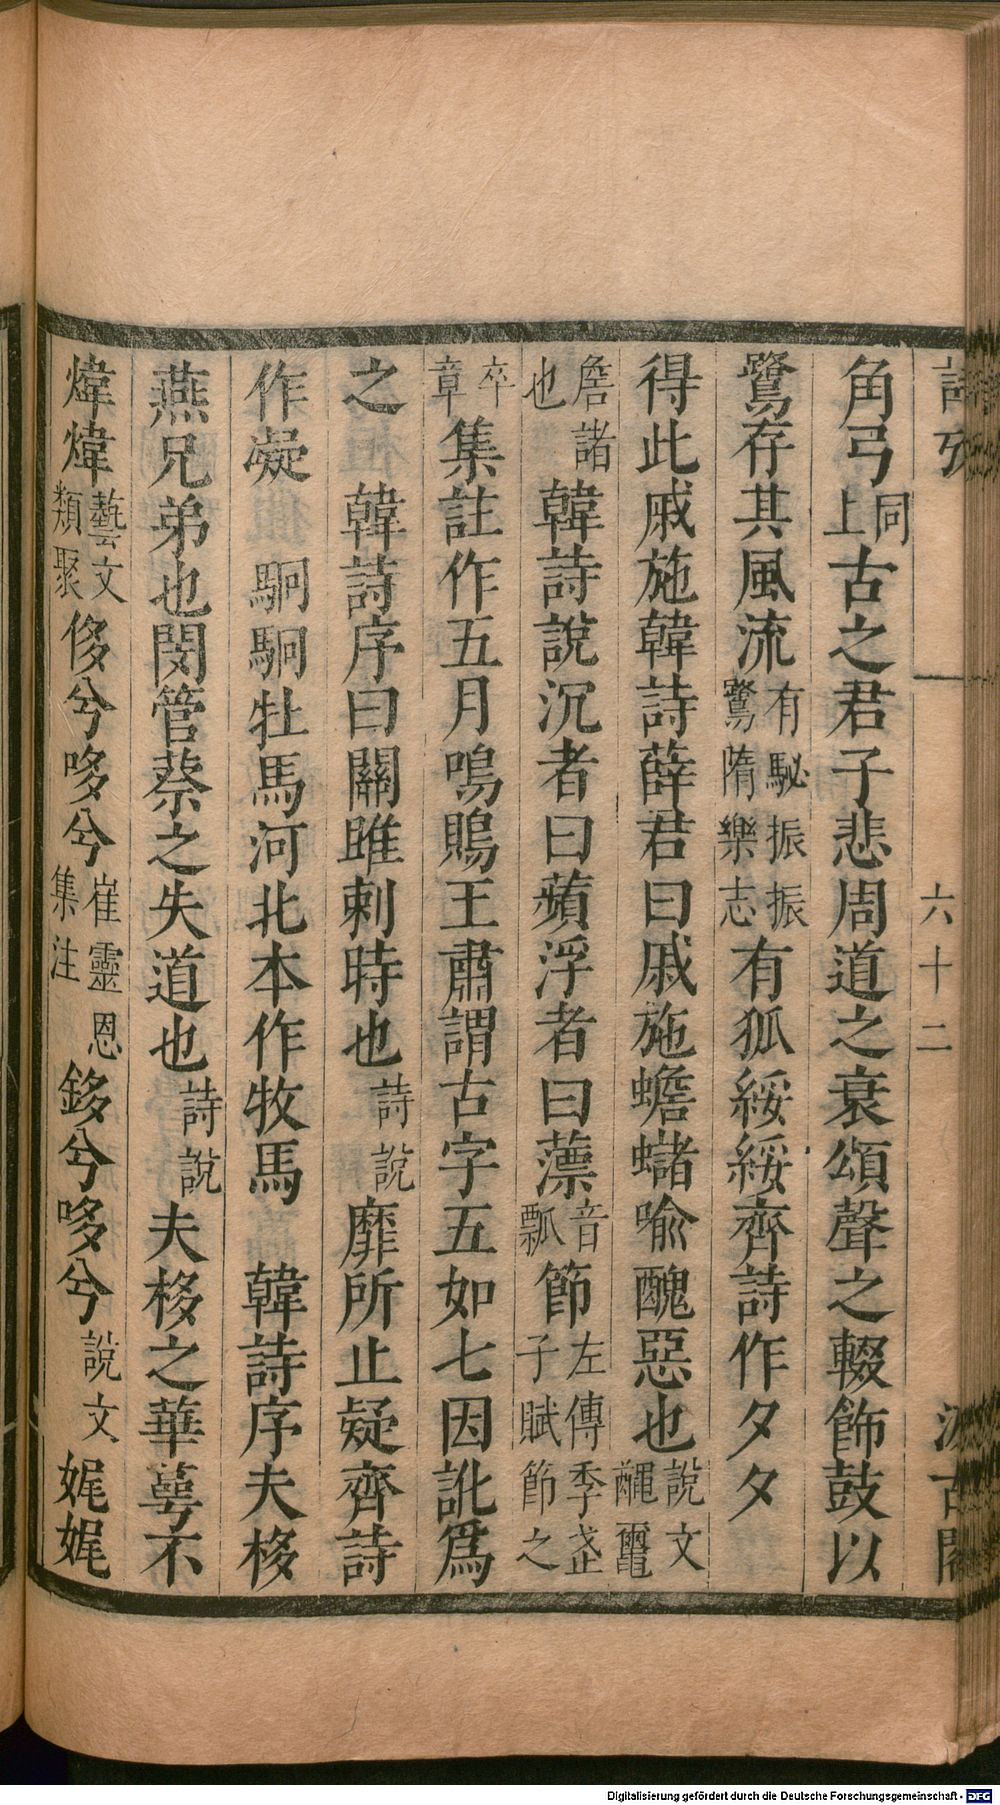 詩攷 六十二 汲古閣
角弓同上古之君子悲周道之衰頌聲之輟飾鼓以
鷺存其風流有駜振振鷺隋樂志有狐綏綏齊詩作夂夂
得此戚施韓詩薛君曰戚施蟾蠩喻醜惡也說文𪓰鼉
詹諸也韓詩說沉者曰蘋浮者曰薸音瓢節左傳季武子賦節之
卒章集註作五月鳴鵙王肅謂古字五如七因訛爲
之 韓詩序曰關雎刺時也詩說靡所止疑齊詩
作凝 駉駉牡馬河北本作牧馬 韓詩序夫栘
燕兄弟也閔管蔡之失道也詩說夫栘之華萼不
煒煒藝文類聚侈兮哆兮崔靈恩集注鉹兮哆兮說文娓娓
Digitalisierung gefördert durch die Deutsche Forschungsgemeinschaft - DFG